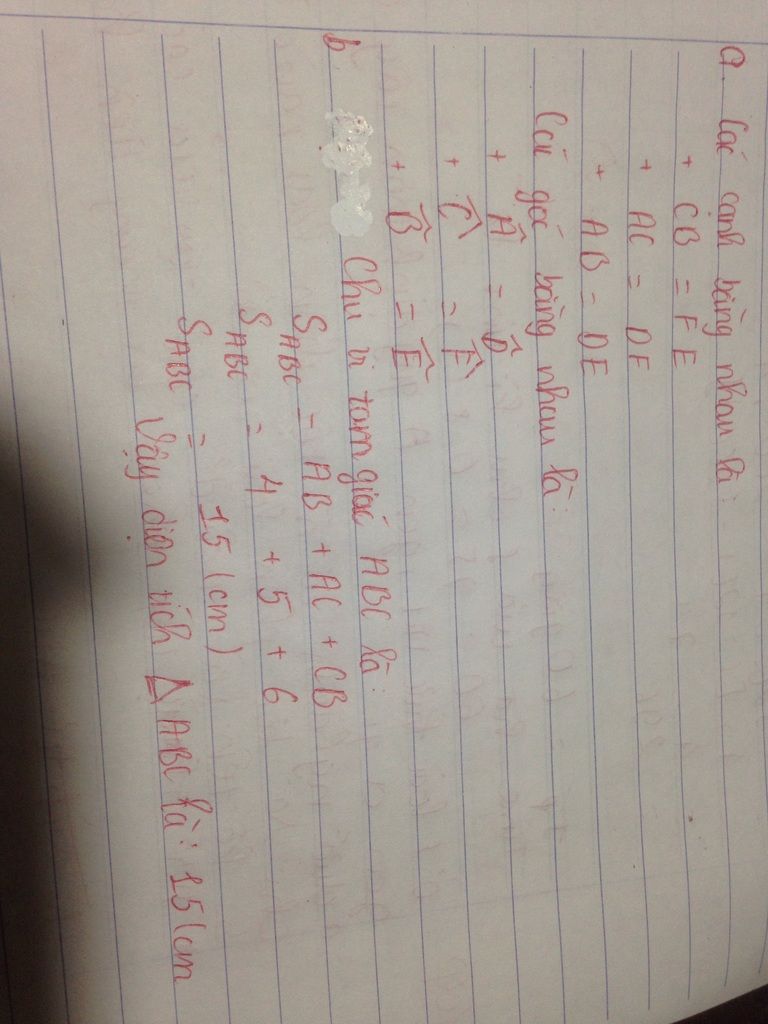 a. Các cạnh bằng nhau là:
+ CB = FE
+ AC = DF
+ AB = DE
Các góc bằng nhau là:
+ Â = D̂
+ Ĉ = Ê
+ B̂ = Ê
b Chu vi tam giác ABC là:
S ABC = AB + AC + CB
S ABC = 4 + 5 + 6
S ABC = 15 (cm)
Vậy diện tích Δ ABC là: 15 (cm